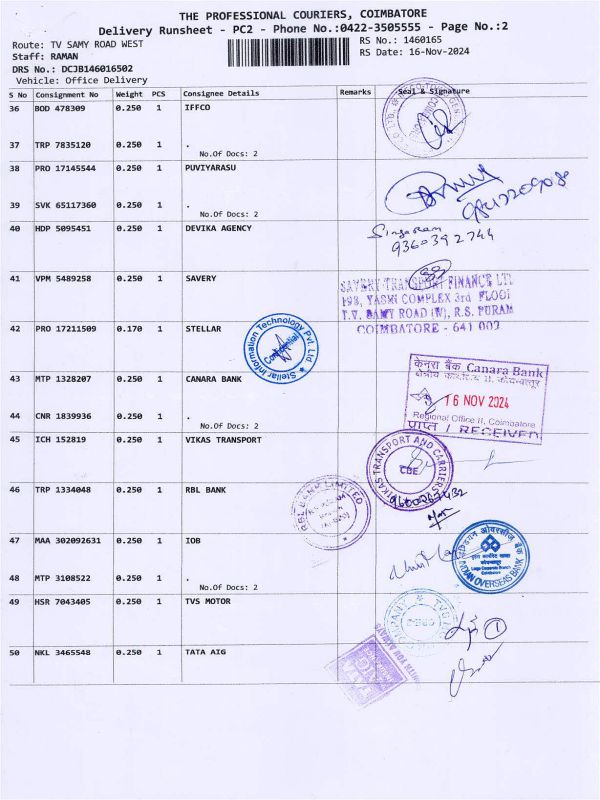 THE PROFESSIONAL COURIERS, COIMBATORE
Delivery Runsheet - PC2 - Phone No.:0422-3505555 - Page No.:2
Route: TV SAMY ROAD WEST
RS No.: 1460165
Staff: RAMAN
RS Date: 16-Nov-2024
DRS No.: DCJB146016502
Vehicle: Office Delivery
S No Consignment No Weight PCS Consignee Details Remarks Seal & Signature
36 BOD 478309 0.250 1 IFFCO
37 TRP 7835120 0.250 1 .
No.Of Docs: 2
38 PRO 17145544 0.250 1 PUVIYARASU
39 SVK 65117360 0.250 1 .
No.Of Docs: 2
40 HDP 5095451 0.250 1 DEVIKA AGENCY
Singaram
9360392744
41 VPM 5489258 0.250 1 SAVERY
SAVERY TRANSPORT FINANCE LTD
198, YASHI COMPLEX 3rd FLOOR
T.V. SAMY ROAD (W), R.S. PURAM
COIMBATORE - 641 002
42 PRO 17211509 0.170 1 STELLAR
Stellar Information Technology Pvt. Ltd
Confidential
43 MTP 1328207 0.250 1 CANARA BANK
केनरा बैंक Canara Bank
16 NOV 2024
Regional Office II, Coimbatore
प्राप्त / RECEIVED
44 CNR 1839936 0.250 1 .
No.Of Docs: 2
45 ICH 152819 0.250 1 VIKAS TRANSPORT
VIKAS TRANSPORT AND CARRIERS
CBE.
46 TRP 1334048 0.250 1 RBL BANK
RBL BANK LIMITED
47 MAA 302092631 0.250 1 IOB
इंडियन ओवरसीज़ बैंक
INDIAN OVERSEAS BANK
48 MTP 3108522 0.250 1 .
No.Of Docs: 2
49 HSR 7043405 0.250 1 TVS MOTOR
1
50 NKL 3465548 0.250 1 TATA AIG
TATA
AIG
WITH YOU ALWAYS